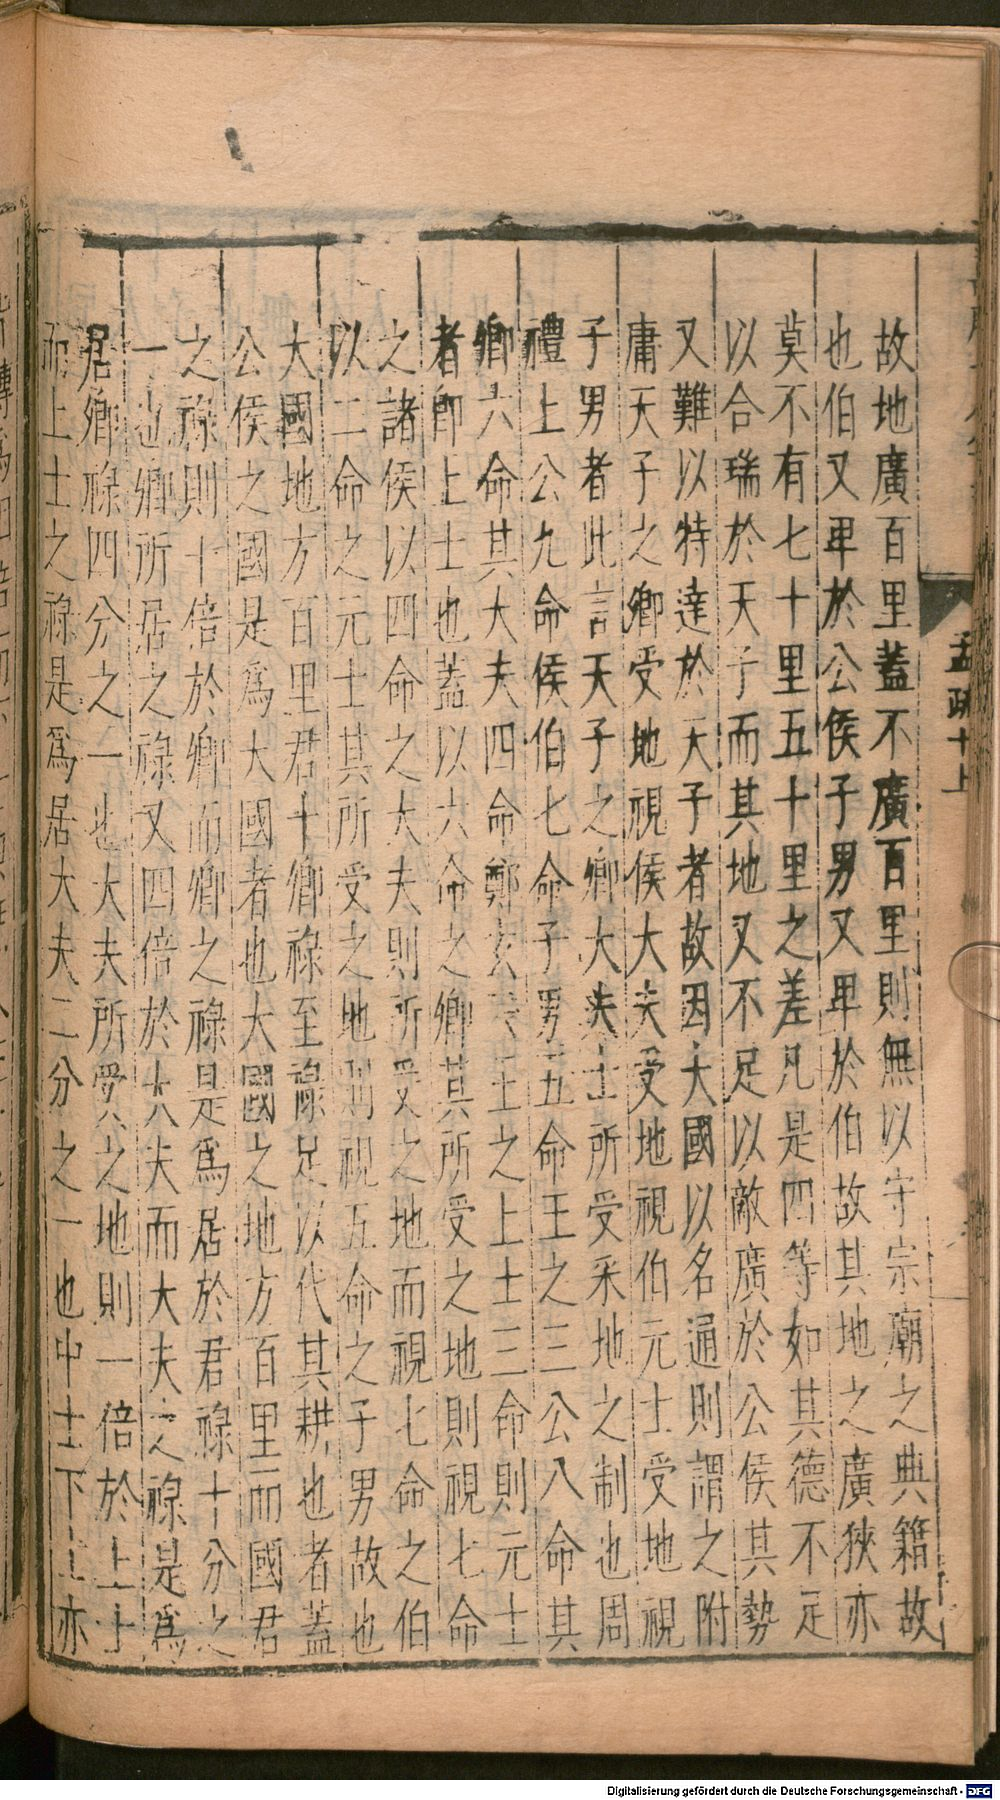 孟疏十上
故地廣百里蓋不廣百里則無以守宗廟之典籍故
也伯又卑於公侯子男又卑於伯故其地之廣狹亦
莫不有七十里五十里之差凡是四等如其德不足
以合瑞於天子而其地又不足以敵廣於公侯其勢
又難以特達於天子者故因大國以名通則謂之附
庸天子之卿受地視侯大夫受地視伯元士受地視
子男者此言天子之卿大夫士所受采地之制也周
禮上公九命侯伯七命子男五命王之三公八命其
卿六命其大夫四命鄭玄云王之上士三命則元士
者即上士也蓋以六命之卿其所受之地則視七命
之諸侯以四命之大夫則所受之地而視七命之伯
以二命之元士其所受之地則視五命之子男故也
大國地方百里君十卿祿至祿足以代其耕也者蓋
公侯之國是為大國者也大國之地方百里而國君
之祿則十倍於卿而卿之祿是為居於君祿十分之
一也卿所居之祿又四倍於大夫而大夫之祿是為
居卿祿四分之一也大夫所受之地則一倍於上士
而上士之祿是為居大夫二分之一也中士下士亦
Digitalisierung gefördert durch die Deutsche Forschungsgemeinschaft - DFG